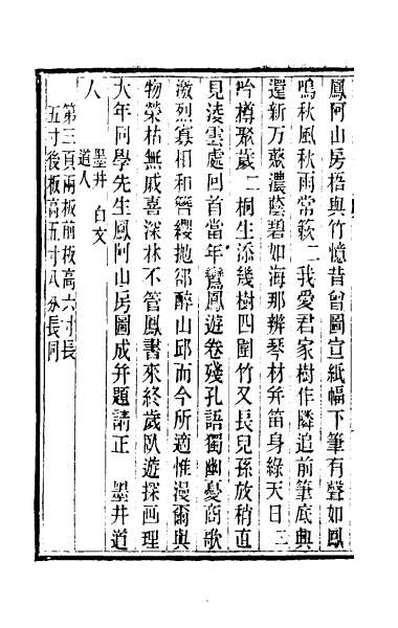 鳳阿山房梧與竹憶昔曾圖宣紙幅下筆有聲如鳳
鳴秋風秋雨常簌二我愛君家樹作隣追前筆底興
還新万叢濃蔭碧如海那辨琴材弁笛身綠天日二
吟樽聚歲二桐生添幾樹四圍竹又長兒孫放稍直
見淩雲處回首當年鸞鳳遊卷殘孔語獨幽憂商歌
激烈寡相和簪纓拋郤醉山邱而今所適惟漫爾與
物榮枯無戚喜深林不管鳳書來終歲臥遊探画理
大年同學先生鳳阿山房圖成弁題請正　墨井道
人　墨井道人　白文
第三頁兩板前板高六寸長
五寸後板高五寸八分長同